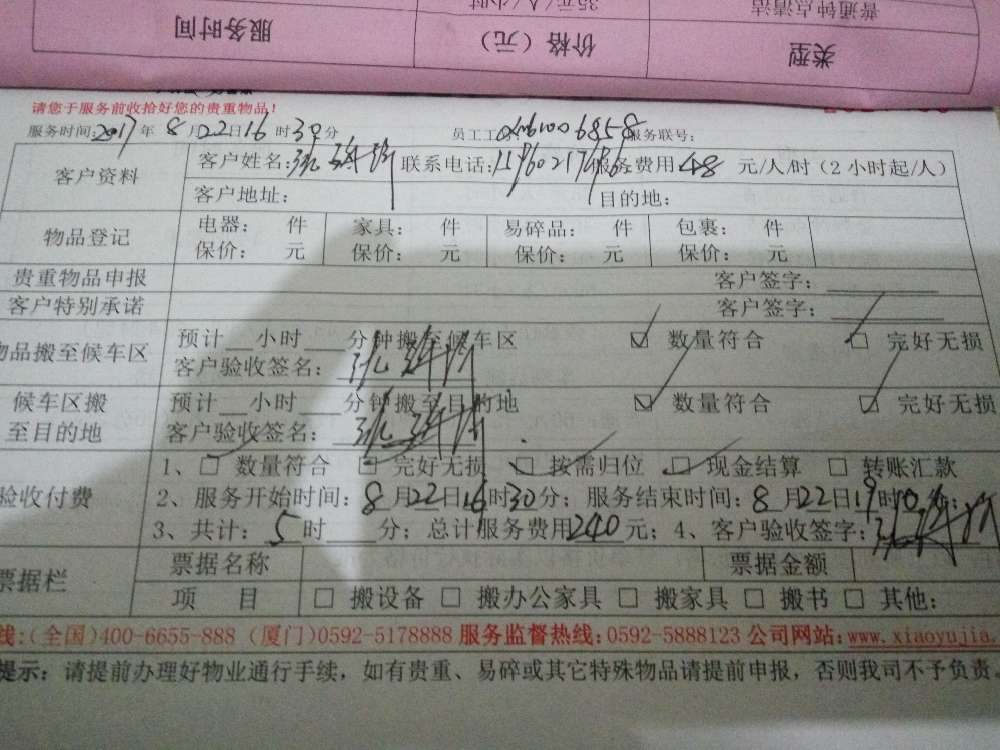 普通钟点清洁 35元/人/小时
类型 价格（元） 服务时间
请您于服务前收拾好您的贵重物品！
服务时间:2017年8月22日16时30分 员工工 服务联号:
客户资料 客户姓名: 联系电话: 服务费用48元/人/时（2小时起/人）
客户地址: 目的地:
物品登记 电器: 件 家具: 件 易碎品: 件 包裹: 件
保价: 元 保价: 元 保价: 元 保价: 元
贵重物品申报 客户签字:
客户特别承诺 客户签字:
物品搬至候车区 预计__小时___分钟搬至候车区 ☑ 数量符合 ☑ 完好无损
客户验收签名:
候车区搬至目的地 预计__小时___分钟搬至目的地 ☑ 数量符合 ☑ 完好无损
客户验收签名:
验收付费 1、☑ 数量符合 ☑ 完好无损 ☑ 按需归位 ☑ 现金结算 □ 转账汇款
2、服务开始时间: 8月22日16时30分; 服务结束时间: 8月22日19时0分;
3、共计: 5时____分; 总计服务费用240元; 4、客户验收签字:
票据栏 票据名称 票据金额
项 目 □ 搬设备 □ 搬办公家具 □ 搬家具 □ 搬书 □ 其他:
线:(全国)400-6655-888 (厦门)0592-5178888 服务监督热线:0592-5888123 公司网站:www.xiaoyujia.
提示: 请提前办理好物业通行手续，如有贵重、易碎或其它特殊物品请提前申报，否则我司不予负责。